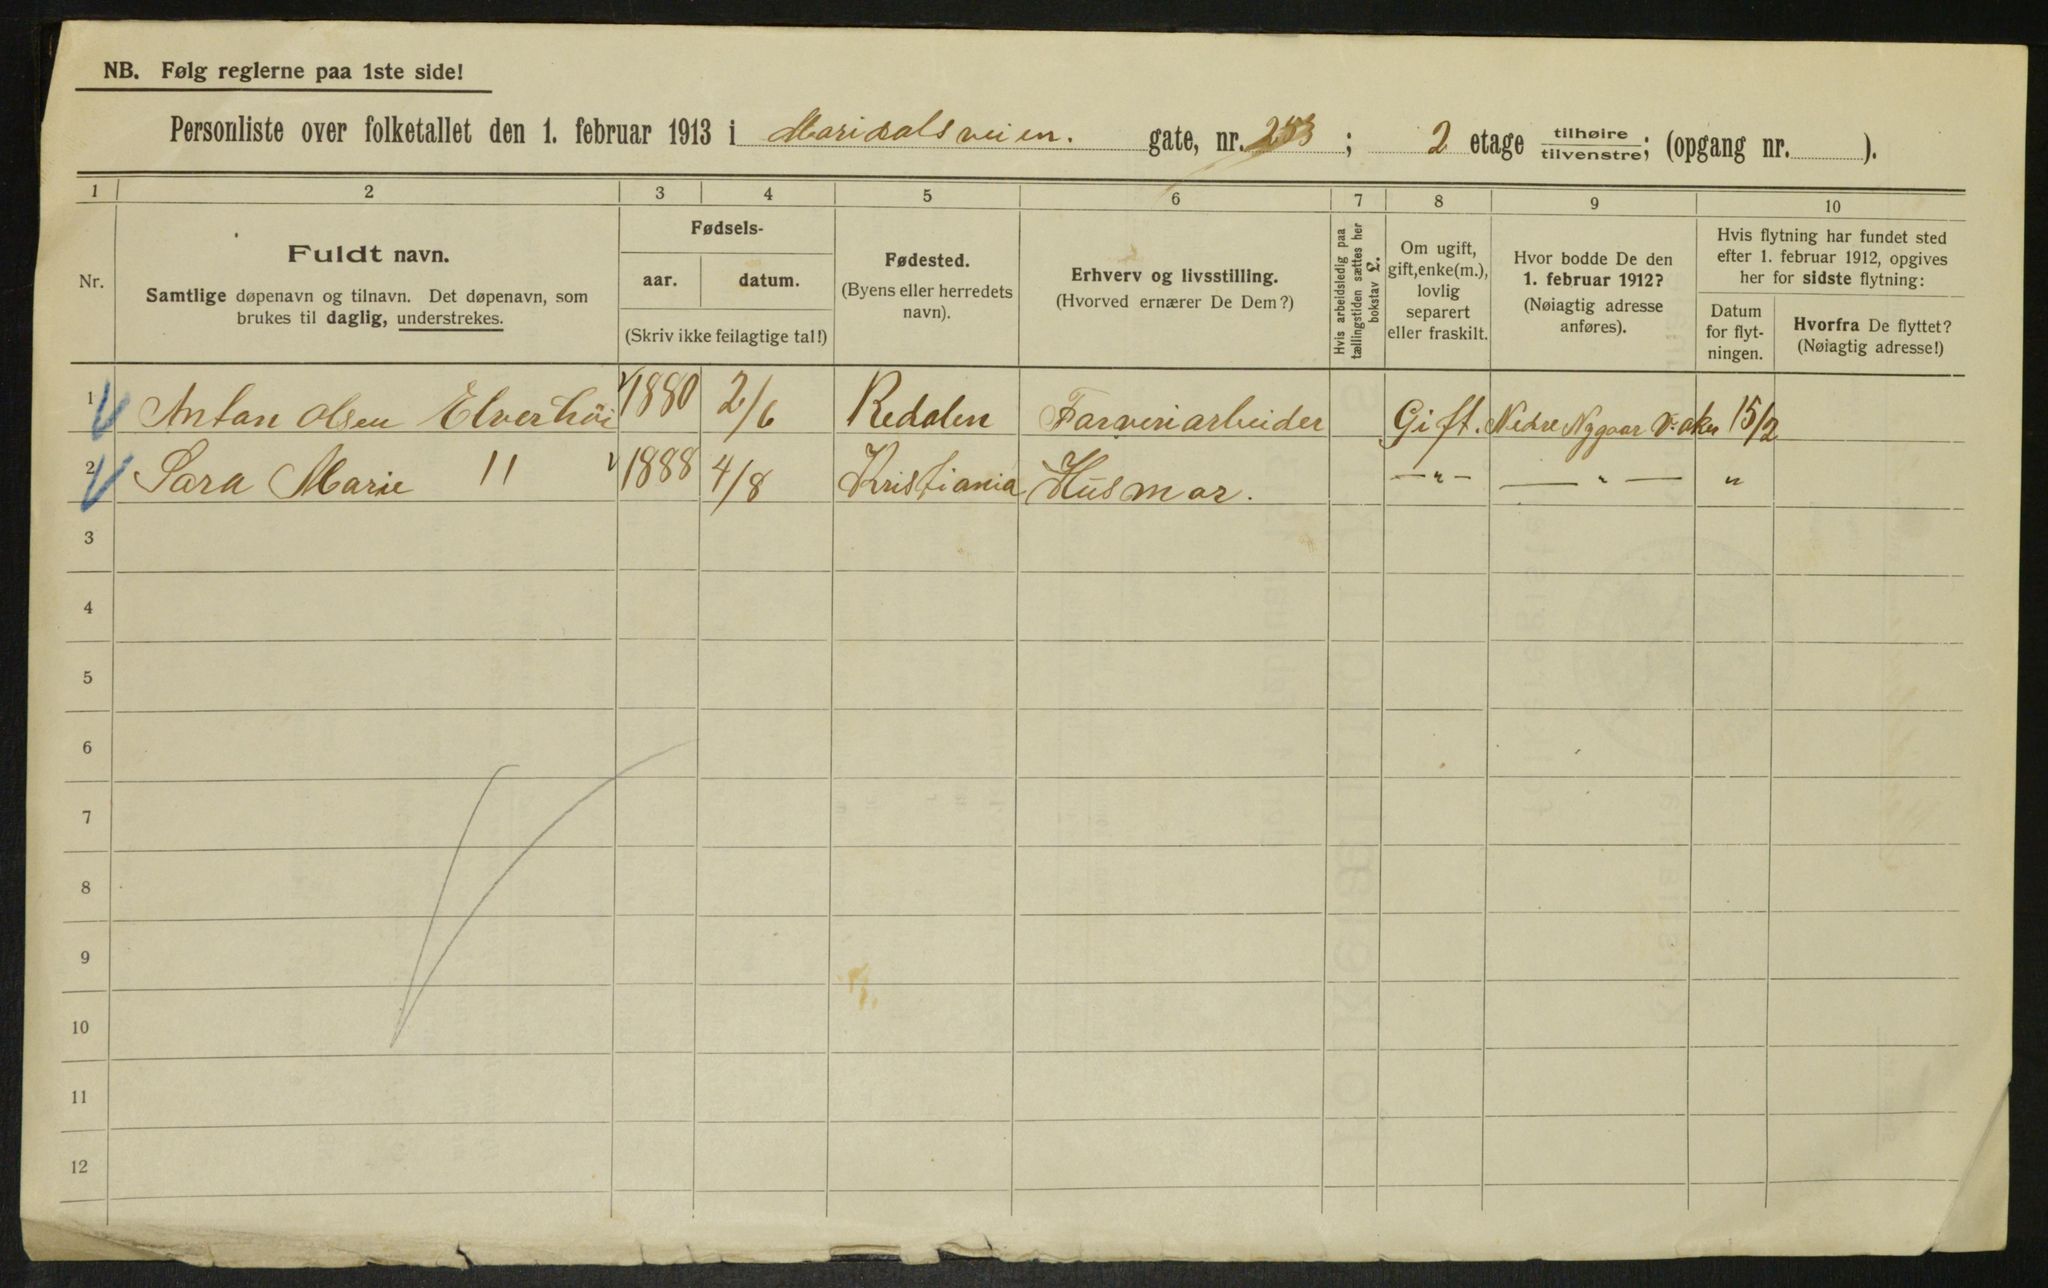 NB. Følg reglerne paa 1ste side!
Personliste over folketallet den 1. februar 1913 i Maridalsveien. gate, nr. 253; 2 etage tilhøire/tilvenstre; (opgang nr. ).
1 2 3 4 5 6 7 8 9 10
Nr.
Fuldt navn.
Samtlige døpenavn og tilnavn. Det døpenavn, som
brukes til daglig, understrekes.
Fødsels-
aar. datum.
(Skriv ikke feilagtige tal!)
Fødested.
(Byens eller herredets
navn).
Erhverv og livsstilling.
(Hvorved ernærer De Dem?)
Hvis arbeidsledig paa
tællingstiden sættes her
bokstav £.
Om ugift,
gift, enke(m.),
lovlig
separert
eller fraskilt.
Hvor bodde De den
1. februar 1912?
(Nøiagtig adresse
anføres).
Hvis flytning har fundet sted
efter 1. februar 1912, opgives
her for sidste flytning:
Datum
for flyt-
ningen.
Hvorfra De flyttet?
(Nøiagtig adresse!)
1 Anton Olsen Elverhöi 1880 2/6 Redalen Farveriarbeider Gift. Nedre Nygaar V. aker 15/2
2 Sara Marie " 1888 4/8 Kristiania Husmor. —"— —"— "
3
4
5
6
7
8
9
10
11
12